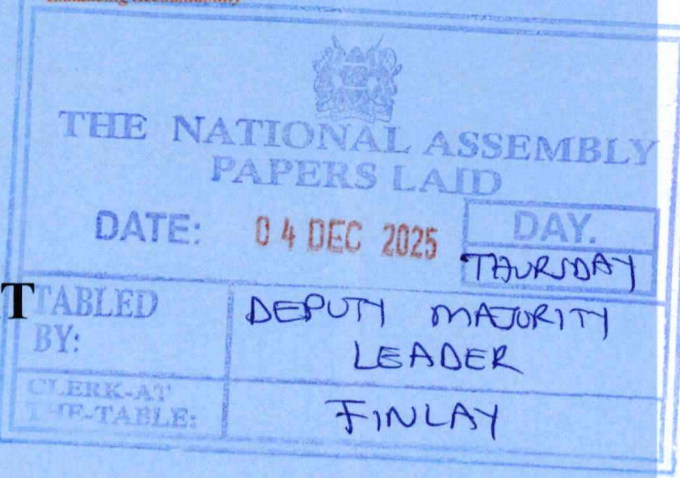 Enhancing Accountability
THE NATIONAL ASSEMBLY
PAPERS LAID
DATE: 04 DEC 2025 DAY.
THURSDAY
T
TABLED BY: DEPUTY MAJORITY LEADER
CLERK-AT THE-TABLE: FINLAY